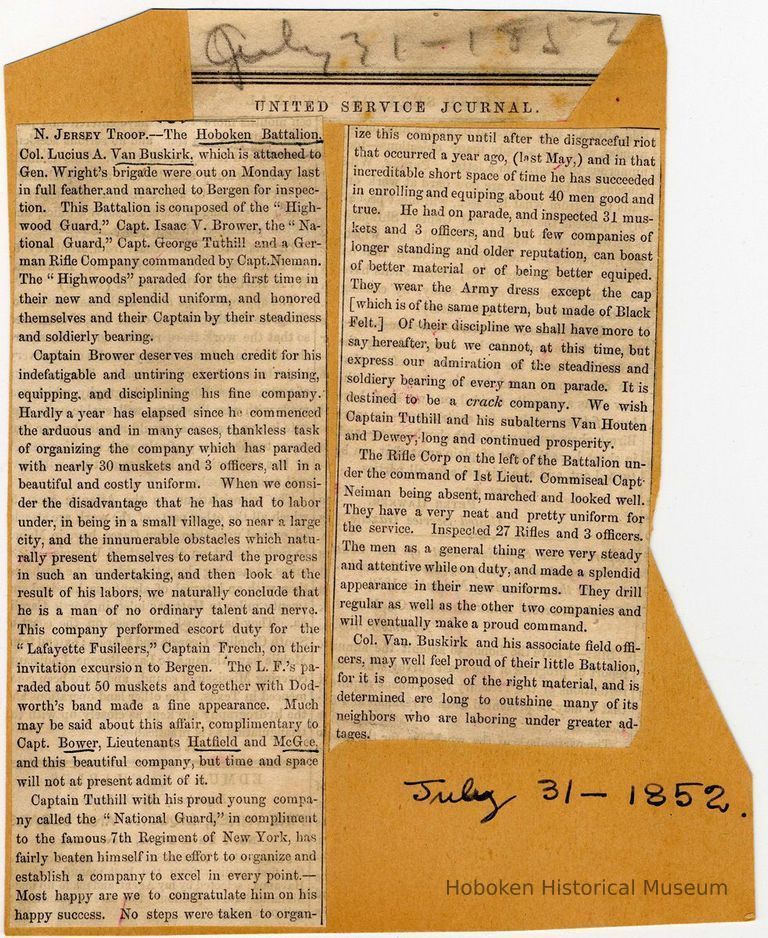 July 31-1852
UNITED SERVICE JOURNAL.
N. JERSEY TROOP.—The Hoboken Battalion,
Col. Lucius A. Van Buskirk, which is attached to
Gen. Wright's brigade were out on Monday last
in full feather,and marched to Bergen for inspec-
tion. This Battalion is composed of the "High-
wood Guard," Capt. Isaac V. Brower, the "Na-
tional Guard," Capt. George Tuthill and a Ger-
man Rifle Company commanded by Capt.Nieman.
The "Highwoods" paraded for the first time in
their new and splendid uniform, and honored
themselves and their Captain by their steadiness
and soldierly bearing.
Captain Brower deserves much credit for his
indefatigable and untiring exertions in raising,
equipping, and disciplining his fine company.
Hardly a year has elapsed since he commenced
the arduous and in many cases, thankless task
of organizing the company which has paraded
with nearly 30 muskets and 3 officers, all in a
beautiful and costly uniform. When we consi-
der the disadvantage that he has had to labor
under, in being in a small village, so near a large
city, and the innumerable obstacles which natu-
rally present themselves to retard the progress
in such an undertaking, and then look at the
result of his labors, we naturally conclude that
he is a man of no ordinary talent and nerve.
This company performed escort duty for the
"Lafayette Fusileers," Captain French, on their
invitation excursion to Bergen. The L. F.'s pa-
raded about 50 muskets and together with Dod-
worth's band made a fine appearance. Much
may be said about this affair, complimentary to
Capt. Bower, Lieutenants Hatfield and McGee,
and this beautiful company, but time and space
will not at present admit of it.
Captain Tuthill with his proud young compa-
ny called the "National Guard," in compliment
to the famous 7th Regiment of New York, has
fairly beaten himself in the effort to organize and
establish a company to excel in every point.—
Most happy are we to congratulate him on his
happy success. No steps were taken to organ-
ize this company until after the disgraceful riot
that occurred a year ago, (last May,) and in that
increditable short space of time he has succeeded
in enrolling and equiping about 40 men good and
true. He had on parade, and inspected 31 mus-
kets and 3 officers, and but few companies of
longer standing and older reputation, can boast
of better material or of being better equiped.
They wear the Army dress except the cap
[which is of the same pattern, but made of Black
Felt.] Of their discipline we shall have more to
say hereafter, but we cannot, at this time, but
express our admiration of the steadiness and
soldiery bearing of every man on parade. It is
destined to be a crack company. We wish
Captain Tuthill and his subalterns Van Houten
and Dewey, long and continued prosperity.
The Rifle Corp on the left of the Battalion un-
der the command of 1st Lieut. Commiseal Capt.
Neiman being absent, marched and looked well.
They have a very neat and pretty uniform for
the service. Inspected 27 Rifles and 3 officers.
The men as a general thing were very steady
and attentive while on duty, and made a splendid
appearance in their new uniforms. They drill
regular as well as the other two companies and
will eventually make a proud command.
Col. Van. Buskirk and his associate field offi-
cers, may well feel proud of their little Battalion,
for it is composed of the right material, and is
determined ere long to outshine many of its
neighbors who are laboring under greater ad-
tages.
July 31-1852.
Hoboken Historical Museum